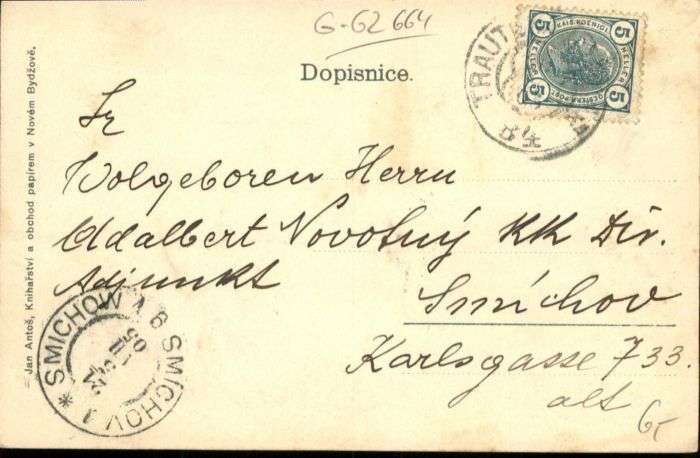 G-G2 664
Dopisnice.
TRAUT
5 KAIS. KOENIGL. 5
HELLER HELLER
5 OESTERR. POST 5
Sr
Wolgeboren Herrn
Adalbert Novotný KK Dir.
Adjunkt
Smíchov
Karlsgasse 733.
alt
SMICHOW 1 * SMÍCHOV 1
05
Jan Antoš, Knihařství a obchod papírem v Novém Bydžově.